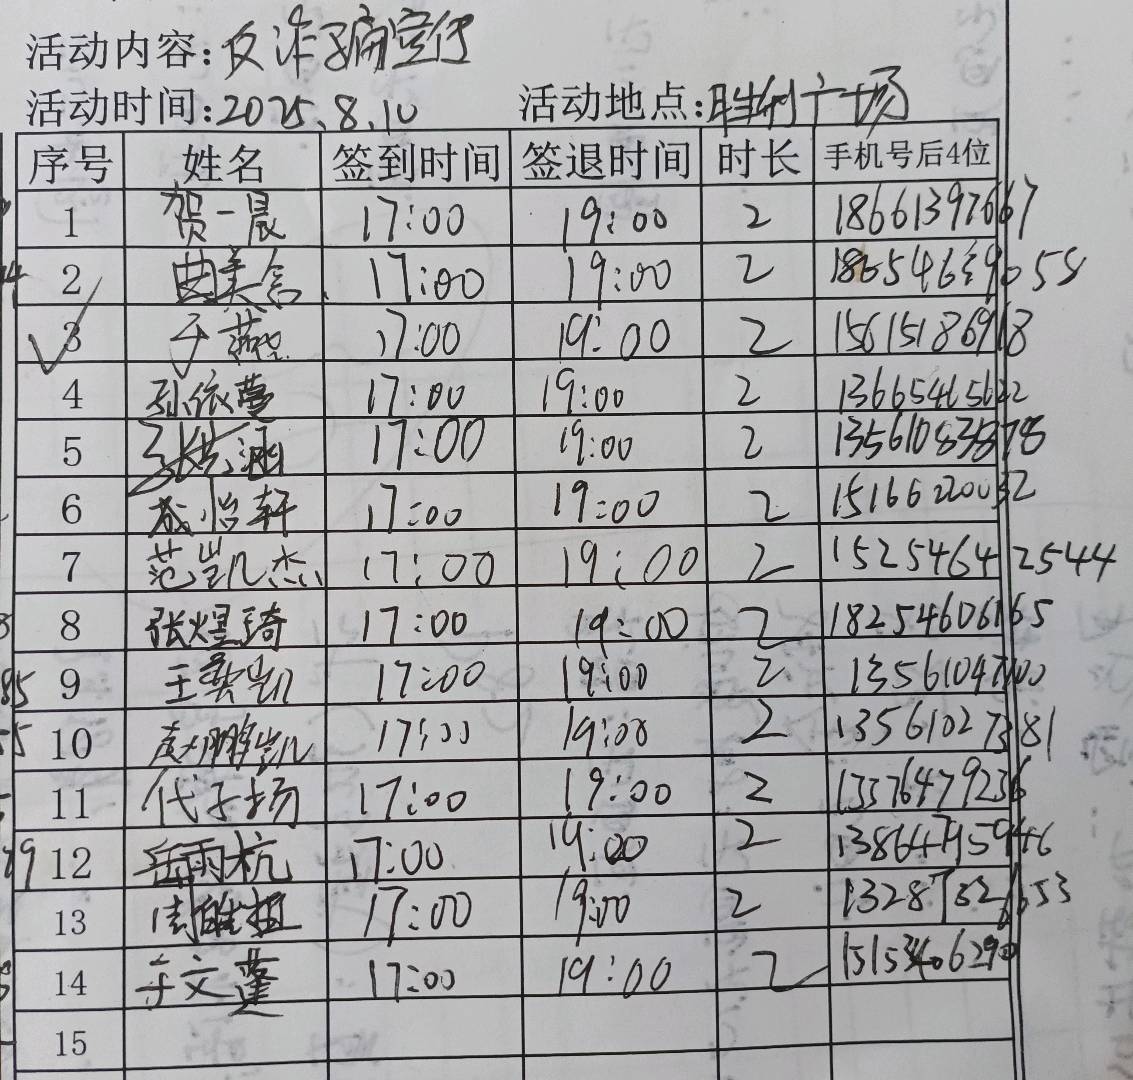 活动内容:反诈骗宣传
活动时间:2025.8.10 活动地点:胜利广场
序号 姓名 签到时间 签退时间 时长 手机号后4位
1 贺一晨 17:00 19:00 2 18661397667
2 曲美 17:00 19:00 2
3 于燕 17:00 19:00 2 15615186918
4 孙依蔓 17:00 19:00 2 13665465622
5 17:00 19:00 2 13561083878
6 怡轩 17:00 19:00 2 15166220032
7 范凯杰 17:00 19:00 2 15254642544
8 张煜琦 17:00 19:00 2 18254606165
9 王凯 17:00 19:00 2 13561047100
10 鹏凯 17:00 19:00 2 13561027381
11 代子扬 17:00 19:00 2 13376479236
12 岳雨杭 17:00 19:00 2 13864795946
13 17:00 19:00 2
14 于文蓬 17:00 19:00 2
15